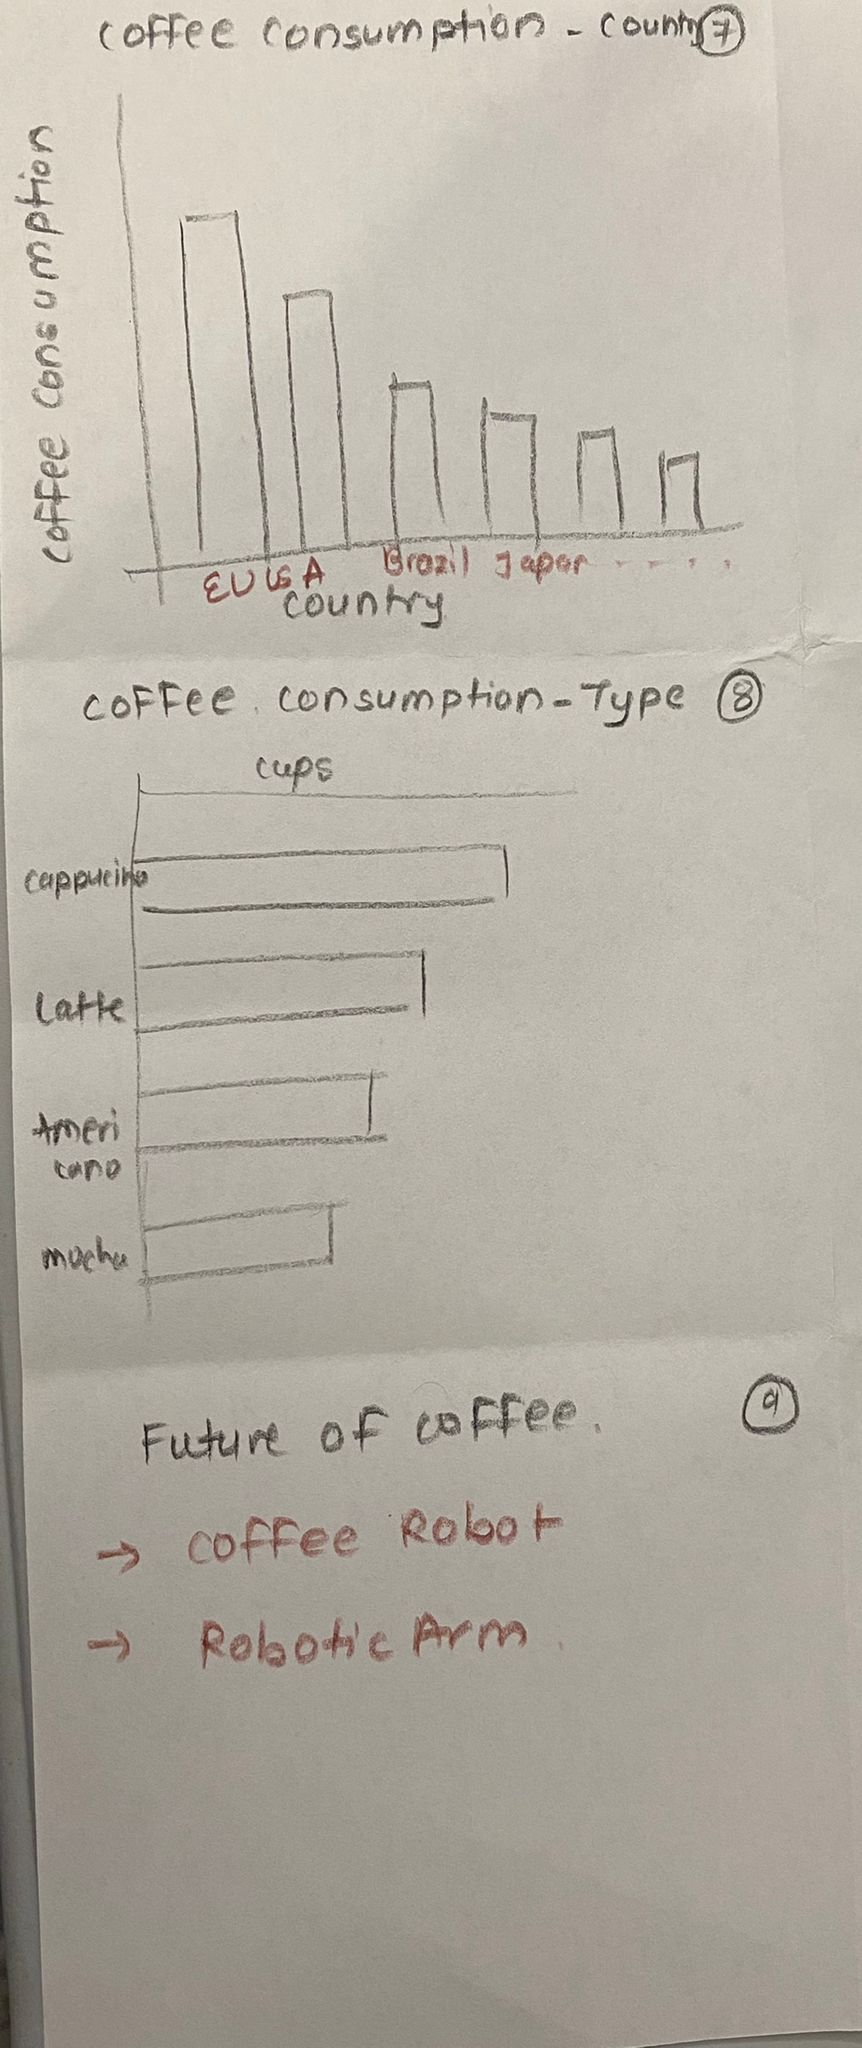 Coffee Consumption - Country 7
Coffee Consumption
EU USA Brazil Japan . . . . .
Country
Coffee Consumption - Type 8
Cups
Cappucino
Latte
Ameri
cano
mocha
Future of coffee. 9
→ Coffee Robot
→ Robotic Arm.